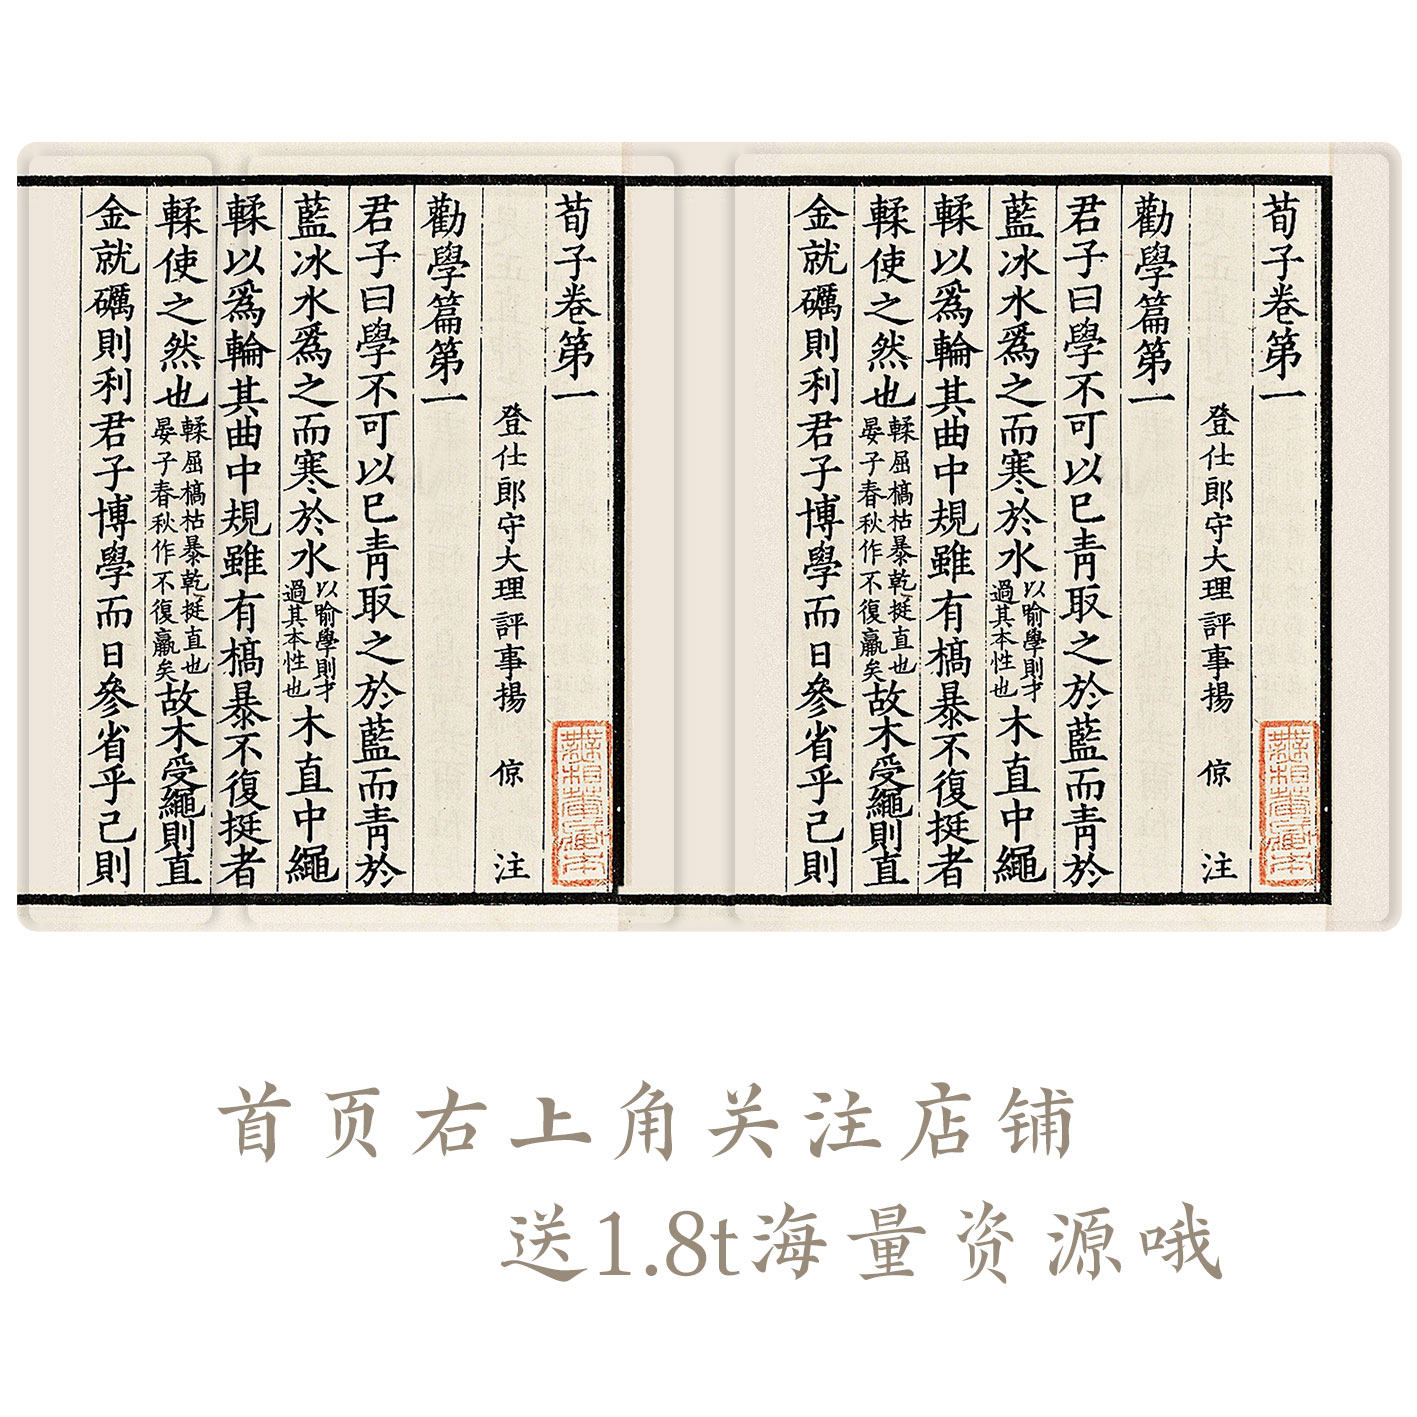 荀子卷第一
登仕郎守大理評事揚 倞 注
勸學篇第一
君子曰學不可以已靑取之於藍而靑於
藍冰水爲之而寒於水以喻學則才過其本性也木直中繩
輮以爲輪其曲中規雖有槁暴不復挺者
輮使之然也輮屈槁枯暴乾挺直也晏子春秋作不復羸矣故木受繩則直
金就礪則利君子博學而日參省乎己則
荀子卷第一
登仕郎守大理評事揚 倞 注
勸學篇第一
君子曰學不可以已靑取之於藍而靑於
藍冰水爲之而寒於水以喻學則才過其本性也木直中繩
輮以爲輪其曲中規雖有槁暴不復挺者
輮使之然也輮屈槁枯暴乾挺直也晏子春秋作不復羸矣故木受繩則直
金就礪則利君子博學而日參省乎己則
首页右上角关注店铺
送1.8t海量资源哦